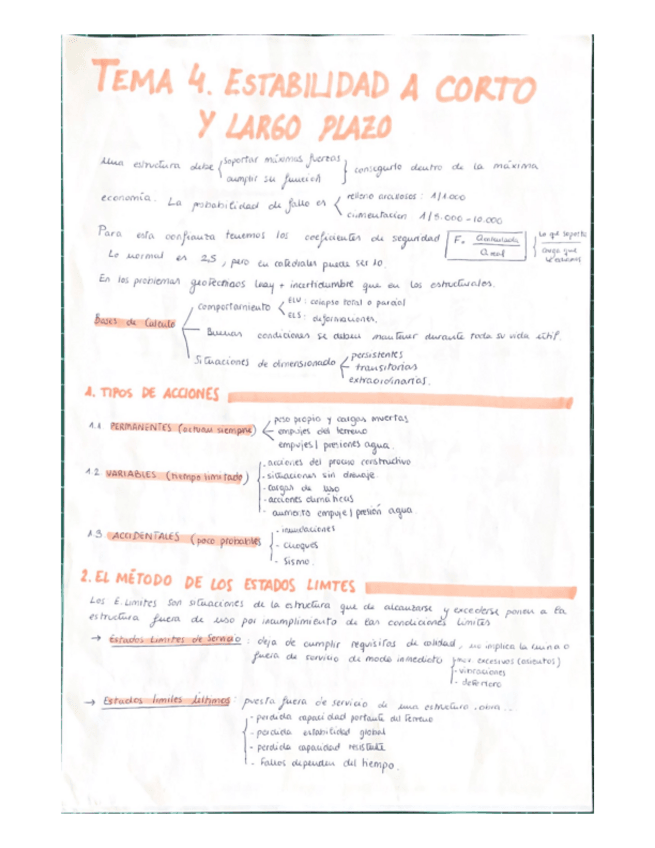 TEMA 4. ESTABILIDAD A CORTO
Y LARGO PLAZO
Una estructura debe { soportar máximas fuerzas / cumplir su función } conseguirlo dentro de la máxima
economía. La probabilidad de fallo es < relleno arcillosos: 1/1.000
cimentación: 1/5.000-10.000
Para esta confianza tenemos los coeficientes de seguridad F =
Q real
Lo que soporta
carga que
Lo normal es 2,5, pero en catedrales puede ser 10.
En los problemas geotécnicos hay + incertidumbre que en los estructurales.
Bases de Cálculo
comportamiento < ELU: colapso total o parcial
ELS: deformaciones.
Buenas condiciones se deben mantener durante toda su vida útil.
Situaciones de dimensionado
persistentes
transitorias
extraordinarias.
1. TIPOS DE ACCIONES
1.1 PERMANENTES (actúan siempre)
peso propio y cargas muertas
empujes del terreno
empujes/presiones agua.
1.2 VARIABLES (tiempo limitado)
- acciones del proceso constructivo
- situaciones sin drenaje
- cargas de uso
- acciones climáticas
- aumento empuje/presión agua.
1.3 ACCIDENTALES (poco probables
- inundaciones
- choques
- Sismo.
2. EL MÉTODO DE LOS ESTADOS LIMTES
Los E. Límites son situaciones de la estructura que de alcanzarse y excederse ponen a la
estructura fuera de uso por incumplimiento de las condiciones límites
→ Estados Límites de Servicio: deja de cumplir requisitos de calidad, no implica la ruina o
fuera de servicio de modo inmediato
mov. excesivos (asientos)
- vibraciones
- deterioro
→ Estados límites Últimos: puesta fuera de servicio de una estructura, obra...
- perdida capacidad portante del terreno
- perdida estabilidad global
- perdida capacidad resistente
- Fallos dependen del tiempo.